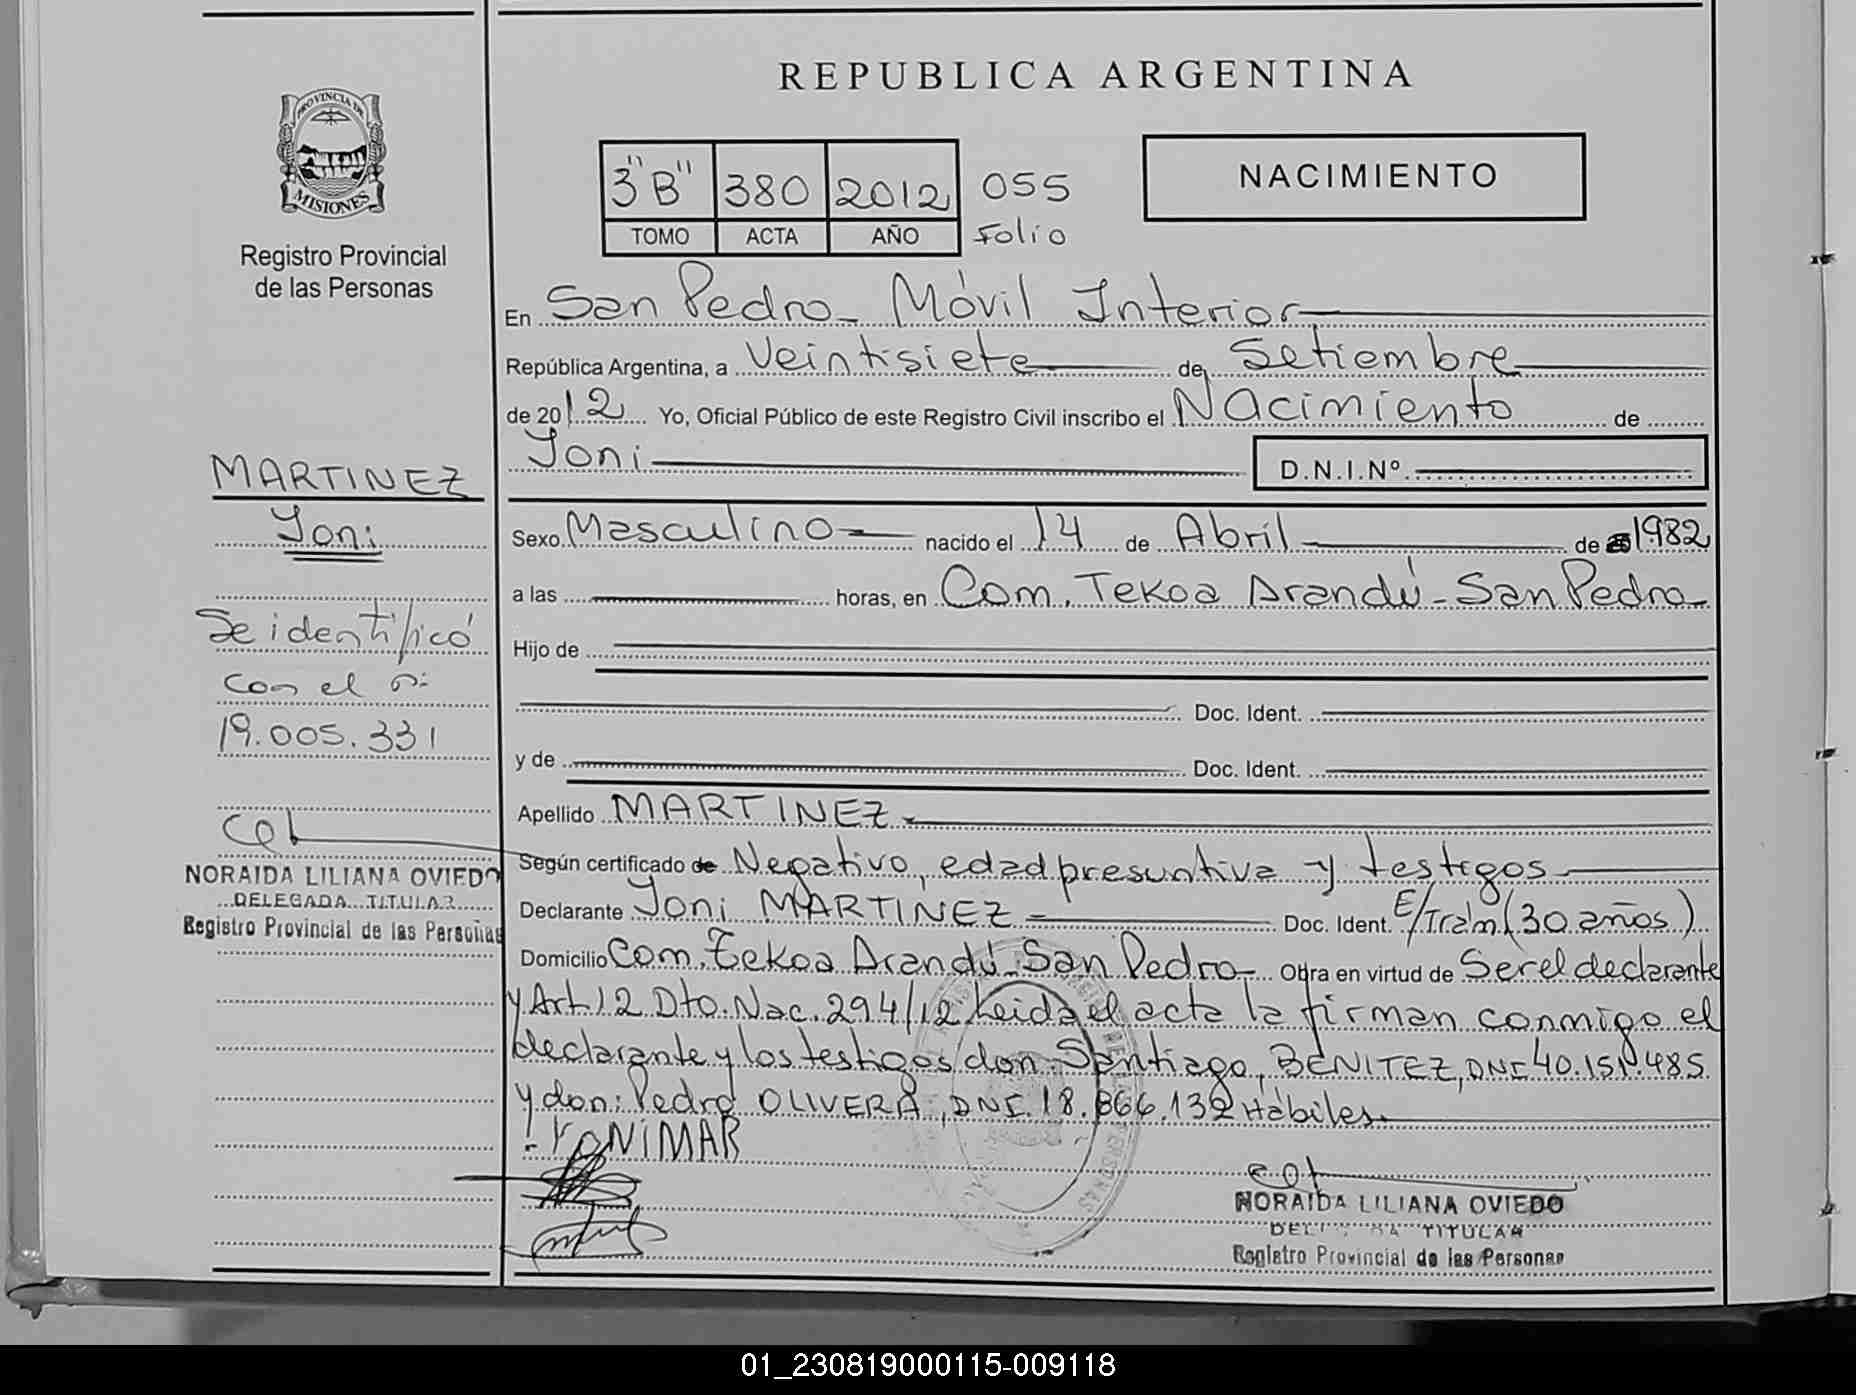 REPUBLICA ARGENTINA
PROVINCIA DE
MISIONES
Registro Provincial
de las Personas
3"B" 380 2012 055
TOMO ACTA AÑO Folio
NACIMIENTO
En San Pedro - Móvil Interior
República Argentina, a Veintisiete de Setiembre
de 2012 Yo, Oficial Público de este Registro Civil inscribo el Nacimiento de
Joni D.N.I.Nº
MARTINEZ
Joni
Se identificó
con el
19.005.331
NORAIDA LILIANA OVIEDO
DELEGADA TITULAR
Registro Provincial de las Personas
Sexo Masculino nacido el 14 de Abril de 1982
a las horas, en Com. Tekoa Arandú - San Pedro
Hijo de
Doc. Ident.
y de Doc. Ident.
Apellido MARTINEZ
Según certificado de Negativo, edad presuntiva y testigos
Declarante Joni MARTINEZ Doc. Ident. E/Trám (30 años)
Domicilio Com. Tekoa Arandú - San Pedro Obra en virtud de Ser el declarante
y Art. 12 Dto. Nac. 294/12 Leida el acta la firman conmigo el
declarante y los testigos don Santiago, BENITEZ, DNI 40.151.485
y don: Pedro OLIVERA, DNI. 18.866.132 Hábiles
YONIMAR
NORAIDA LILIANA OVIEDO
TITULAR
Registro Provincial de las Personas
01_230819000115-009118